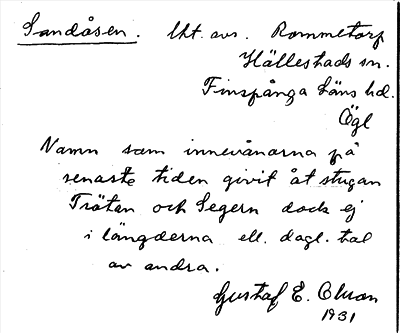 Sandåsen. lht. avs. Rommetorp
Hällestads sn.
Finspånga läns hd.
Ögl
Namn som innevånarna på
senaste tiden givit åt stugan
Trätan och Segern dock ej
i längderna ell. dagl. tal
av andra.
Gustaf E.
1931